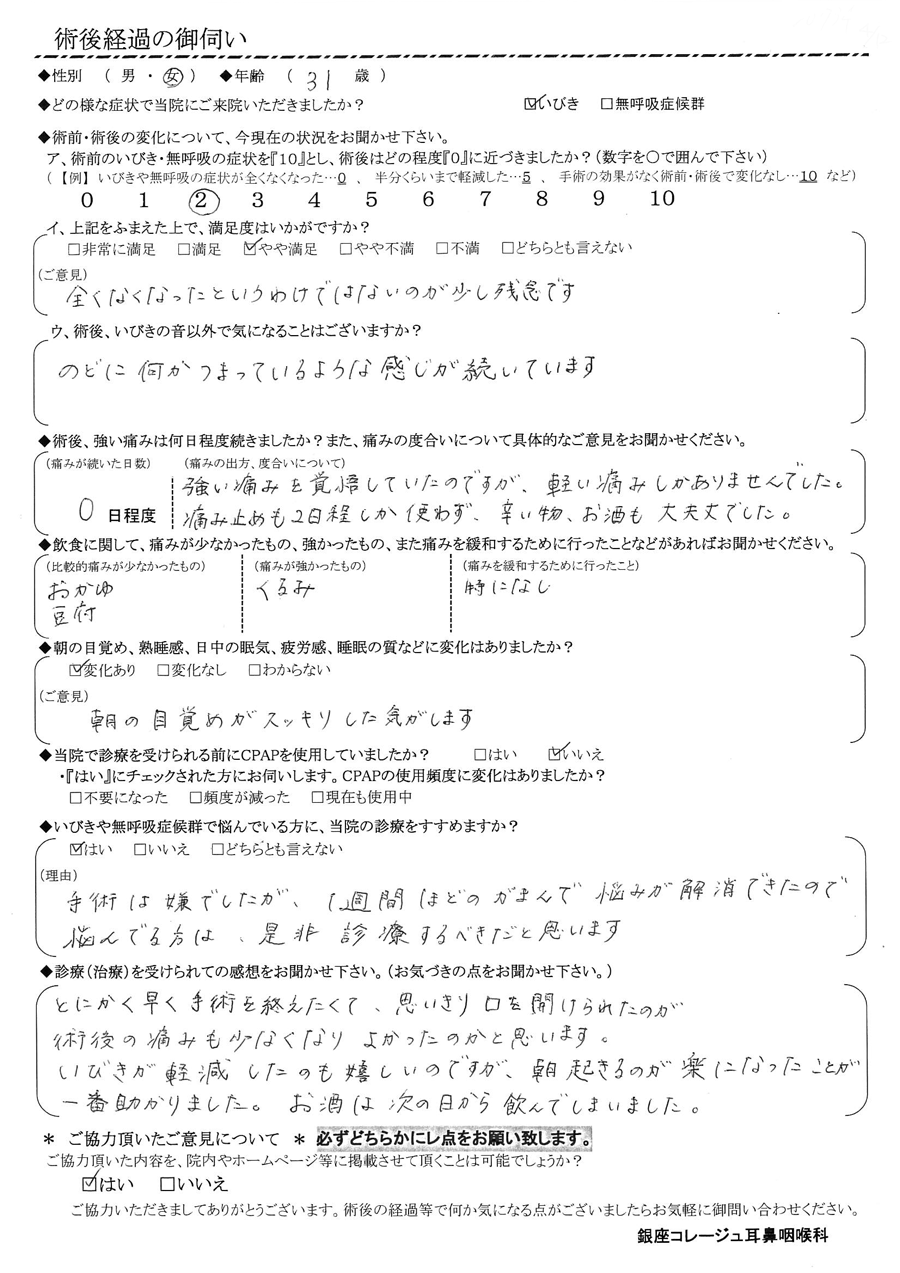 術後経過の御伺い
◆性別 （ 男 ・ 女 ） ◆年齢 （ 31 歳 ）
◆どの様な症状で当院にご来院いただきましたか？ ☑いびき □無呼吸症候群
◆術前・術後の変化について、今現在の状況をお聞かせ下さい。
ア、術前のいびき・無呼吸の症状を『10』とし、術後はどの程度『0』に近づきましたか？（数字を〇で囲んで下さい）
（ 【例】 いびきや無呼吸の症状が全くなくなった…0 、 半分くらいまで軽減した…5 、 手術の効果がなく術前・術後で変化なし…10 など）
0 1 2 3 4 5 6 7 8 9 10
イ、上記をふまえた上で、満足度はいかがですか？
□非常に満足 □満足 ☑やや満足 □やや不満 □不満 □どちらとも言えない
（ご意見）
全くなくなったというわけではないのが少し残念です
ウ、術後、いびきの音以外で気になることはございますか？
のどに何かつまっているような感じが続いています
◆術後、強い痛みは何日程度続きましたか？また、痛みの度合いについて具体的なご意見をお聞かせください。
（痛みが続いた日数） （痛みの出方、度合いについて）
強い痛みを覚悟していたのですが、軽い痛みしかありませんでした。
0 日程度 痛み止めも2日程しか使わず、辛い物、お酒も大丈夫でした。
◆飲食に関して、痛みが少なかったもの、強かったもの、また痛みを緩和するために行ったことなどがあればお聞かせください。
（比較的痛みが少なかったもの） （痛みが強かったもの） （痛みを緩和するために行ったこと）
おかゆ くるみ 特になし
豆府
◆朝の目覚め、熟睡感、日中の眠気、疲労感、睡眠の質などに変化はありましたか？
☑変化あり □変化なし □わからない
（ご意見）
朝の目覚めがスッキリした気がします
◆当院で診療を受けられる前にCPAPを使用していましたか？ □はい ☑いいえ
・『はい』にチェックされた方にお伺いします。CPAPの使用頻度に変化はありましたか？
□不要になった □頻度が減った □現在も使用中
◆いびきや無呼吸症候群で悩んでいる方に、当院の診療をすすめますか？
☑はい □いいえ □どちらとも言えない
（理由）
手術は嫌でしたが、1週間ほどのがまんで悩みが解消できたので
悩んでる方は、是非診療するべきだと思います
◆診療（治療）を受けられての感想をお聞かせ下さい。（お気づきの点をお聞かせ下さい。）
とにかく早く手術を終えたくて、思いきり口を開けられたのが
術後の痛みも少なくなりよかったのかと思います。
いびきが軽減したのも嬉しいのですが、朝起きるのが楽になったことが
一番助かりました。お酒は次の日から飲んでしまいました。
＊ ご協力頂いたご意見について ＊ 必ずどちらかにレ点をお願い致します。
ご協力頂いた内容を、院内やホームページ等に掲載させて頂くことは可能でしょうか？
☑はい □いいえ
ご協力いただきましてありがとうございます。術後の経過等で何か気になる点がございましたらお気軽に御問い合わせください。
銀座コレージュ耳鼻咽喉科